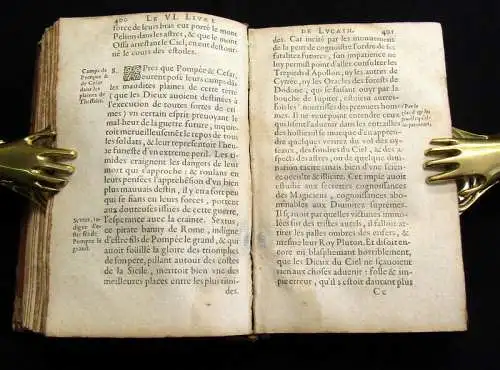 400 LE VI. LIVRE
force de leurs bras eut porté le mont
Pelion dans les astres, & que le mont
Ossa arrestant le Ciel, en eut destour-
né le cours des estoiles.
Camps de
Pompée &
de Cesar
dans les
plaines de
Thessalie.
8. Apres que Pompée & Cesar,
eurent posé leurs camps dãs
les maudites plaines de cette terre
( que les Dieux auoient destinées à
l'execution de toutes sortes de cri-
mes ) vn certain esprit preuoyant le
mal-heur de la guerre future, inquie-
toit merueilleusemẽt le repos de tous
les soldats, & leur representoit l'heu-
re funeste d'vn extreme peril. Les ti-
mides craignent les dangers de la
mort qui s'approche : & roulant en
leurs pensées l'apprehẽsiõ d'vn bien
plus mauuais destin, il y en a fort peu
qui se fians en leurs forces, portent
aux douteuses issuës de cette guerre,
l'esperance auec la crainte. Sextus
ce pirate banny de Rome, indigne
d'estre fils de Pompée le grand, & qui
auoit souillé la gloire des triomphes
de son pere, pillant autour des costes
de la Sicile, meritoit bien vne des
meilleures places entre les plus timi-
des.
Sextus, in-
digne d'e-
stre fils de
Pompée le
grand.
DE LVCAIN. 401
des. Car incité par les mouuemens
de la peur de cognoistre l'ordre de ses
fatalitez futures, son impatience ne
luy permit point d'aller consulter les
Trepieds d'Apollon, ny les antres de
Cyrrée, ny les Oracles des forests de
Dodone, qui se faisant ouyr par la
bouche de Iupiter, estoient suffisans
mes. Il ne veut point entendre ceux
les hosties il se mocque d'en appren-
dre quelques veritez du vol des oy-
seaux, des foudres du Ciel, & des a-
spects des astres, ou de quelque diui-
nation tacite mais bien d'vne scien-
ce occulte & illicite. Cet impie auoit
estudié aux secrettes cognoissances
des Magiciens, cognoissances abho-
minables aux Diuinitez supremes.
Il sçauoit par quelles victimes immo-
lées sur des tristes autels, il falloit at-
tirer les palles ombres des enfers, &
mesme leur Roy Pluton. Et disoit en-
core en blasphemant horriblement,
que les Dieux du Ciel ne sçauoient
rien aux choses aduenir : folle & im-
pie erreur, qu'il s'estoit dautant plus
Cc